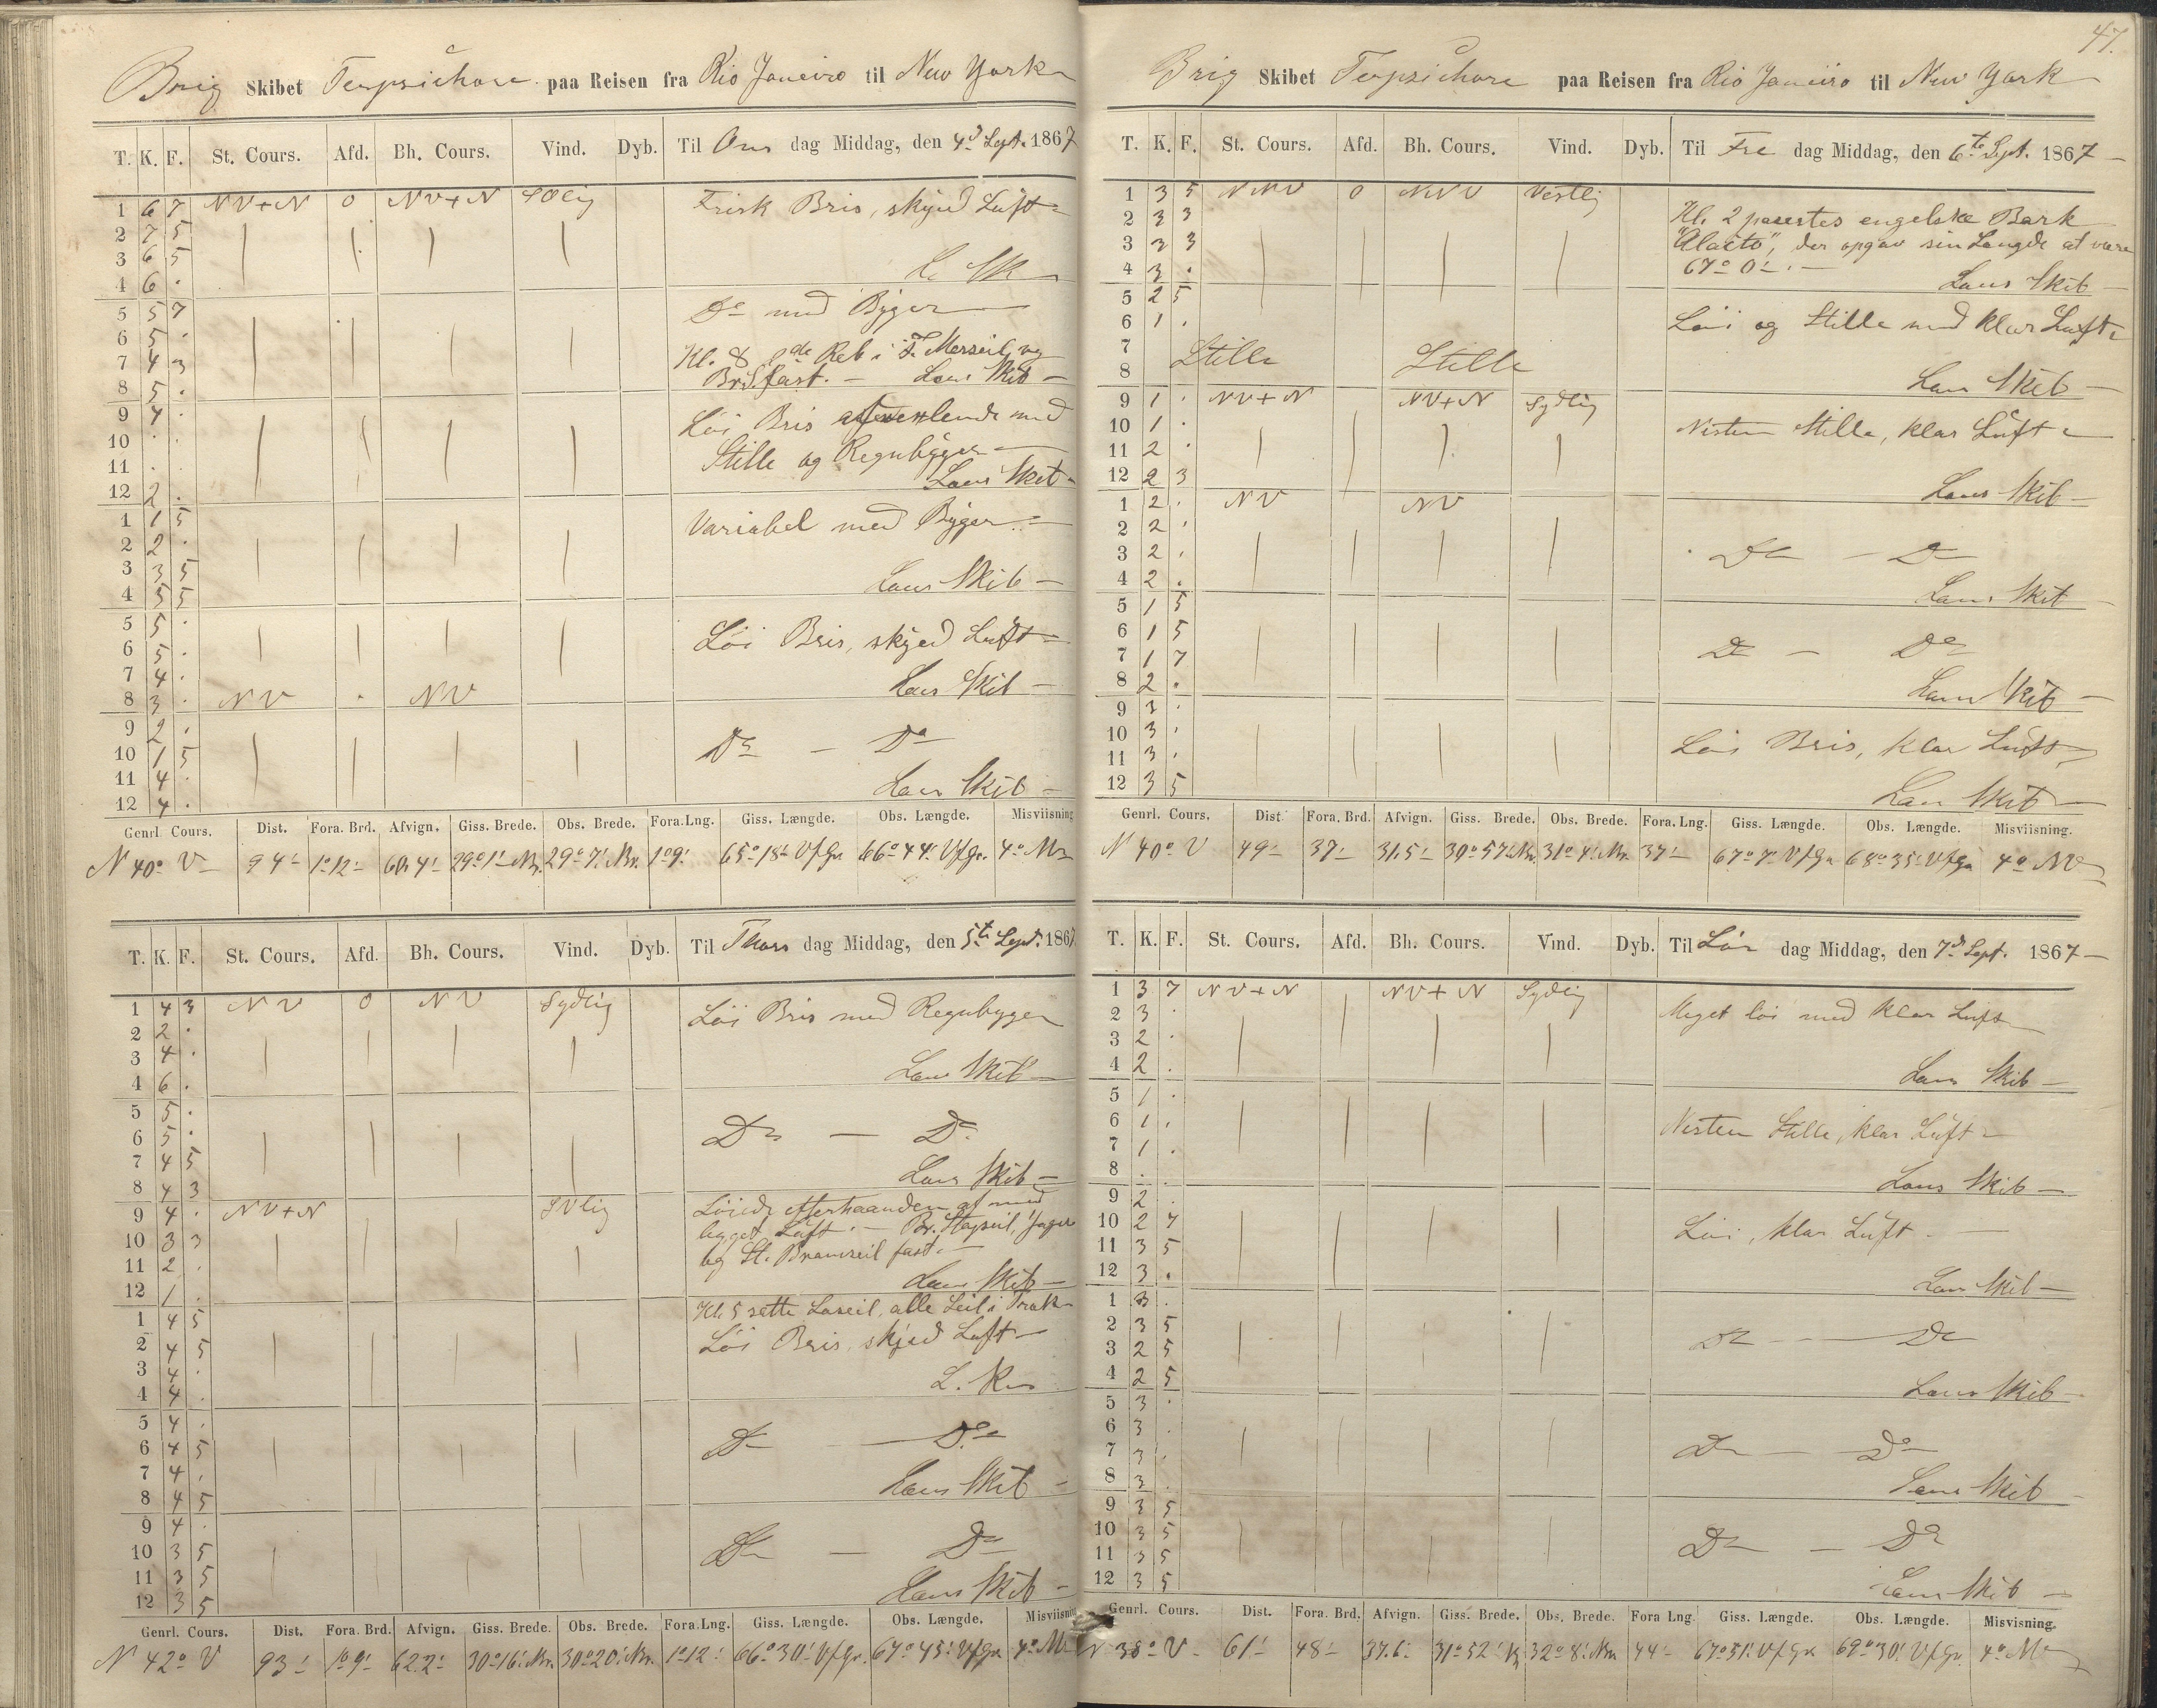 Brig Skibet Terpsichore paa Reisen fra Rio Janeiro til New York
T. K. F. St. Cours. Afd. Bh. Cours. Vind. Dyb. Til Ons dag Middag, den 4d Sept. 1867
1 6 7 NV+N 0 NV+N SOlig Frisk Bris, skyed Luft
2 7 5
3 6 5
4 6 .
5 5 7 Do med Byger
6 5 .
7 4 3 Kl. 8 2de Reb i F. Merseil og
8 5 . fast. Lens Skib
9 4 . Løi Bris afvexlende med
10 . . Stille og Regnbyger
11 . . Lens Skib
12 2 .
1 1 5 Variabel med Byger
2 2 .
3 3 5
4 5 5 Lens Skib
5 5 .
6 5 . Løi Bris, skyed Luft
7 4 . Lens Skib
8 3 . NV . NV
9 2 .
10 1 5 Do - Do
11 4 .
12 4 . Lens Skib
Genrl. Cours. Dist. Fora. Brd. Afvign. Giss. Brede. Obs. Brede. Fora. Lng. Giss. Længde. Obs. Længde. Misviisning
N 40° V 94' 1°12' 60,4' 29°1' Nr. 29°7' Nr. 1°9' 65°18' V f Gr. 66°44' V f Gr. 4°
T. K. F. St. Cours. Afd. Bh. Cours. Vind. Dyb. Til Thors dag Middag, den 5te Sept. 1867
1 4 3 NV 0 NV Sydlig Løi Bris med Regnbyger
2 2 .
3 4 .
4 6 . Lens Skib
5 5 .
6 5 . Do - Do
7 4 5
8 4 3 Lens Skib
9 4 . NV+N SVlig Løiede efterhaanden af med
10 3 3 bygget Luft. - Br. Stagseil, Jager
11 2 . og St. Bramseil fast.
12 1 . Lens Skib
1 4 5 Kl. 5 sette Læseil, alle Seil i Træk
2 4 5 Løi Bris, skyed Luft
3 4 .
4 4 .
5 4 .
6 4 5 Do - Do
7 4 .
8 4 5 Lens Skib
9 4 .
10 3 5 Do - Do
11 3 5
12 3 5 Lens Skib
Genrl. Cours. Dist. Fora. Brd. Afvign. Giss. Brede. Obs. Brede. Fora. Lng. Giss. Længde. Obs. Længde. Misviisning
N 42° V 93' 1°9' 62.2' 30°16' Nr. 30°20' Nr. 1°12' 66°30' V f Gr. 67°45' V f Gr. 4°
47.
Brig Skibet Terpsichore paa Reisen fra Rio Janeiro til New York
T. K. F. St. Cours. Afd. Bh. Cours. Vind. Dyb. Til Fre dag Middag, den 6te Sept. 1867
1 3 5 NNV 0 NNV Vestlig
2 3 3 Kl. 2 passertes engelske Bark
3 3 3 der opgav sin Længde at være
4 3 . 67° 0'. Lens Skib
5 2 5
6 1 . Løi og Stille med klar Luft
7 Stille Stille
8 Lens Skib
9 1 . NV+N NV+N Sydlig
10 1 . Nesten Stille, klar Luft
11 2 .
12 2 3 Lens Skib
1 2 . NV NV
2 2 .
3 2 . Do - Do
4 2 . Lens Skib
5 1 5
6 1 5
7 1 7 Do - Do
8 2 . Lens Skib
9 3 .
10 3 . Løi Bris, klar Luft
11 3 .
12 3 5 Lens Skib
Genrl. Cours. Dist. Fora. Brd. Afvign. Giss. Brede. Obs. Brede. Fora. Lng. Giss. Længde. Obs. Længde. Misviisning.
N 40° V 49' 37' 31.5' 30°57' Nr. 31°4' Nr. 37' 67°7' V f Gr 68°35' V f Gr 4° NV
T. K. F. St. Cours. Afd. Bh. Cours. Vind. Dyb. Til Lør dag Middag, den 7d Sept. 1867
1 3 7 NV+N NV+N Sydlig
2 3 . Meget løi med klar Luft
3 2 .
4 2 . Lens Skib
5 1 .
6 1 . Nesten Stille, klar Luft
7 1 .
8 . . Lens Skib
9 2 .
10 2 7 Løi, klar Luft
11 3 5
12 3 . Lens Skib
1 3 .
2 3 5 Do - Do
3 2 5
4 2 5 Lens Skib
5 3 .
6 3 . Do - Do
7 3 .
8 3 . Lens Skib
9 3 5
10 3 5 Do - Do
11 3 5
12 3 5 Lens Skib
Genrl. Cours. Dist. Fora. Brd. Afvign. Giss. Brede. Obs. Brede. Fora Lng. Giss. Længde. Obs. Længde. Misvisning.
N 38° V 61' 48' 37.6' 31°52' N 32°8' Nr. 44' 67°51' V f Gr 69°30' V f Gr. 4°